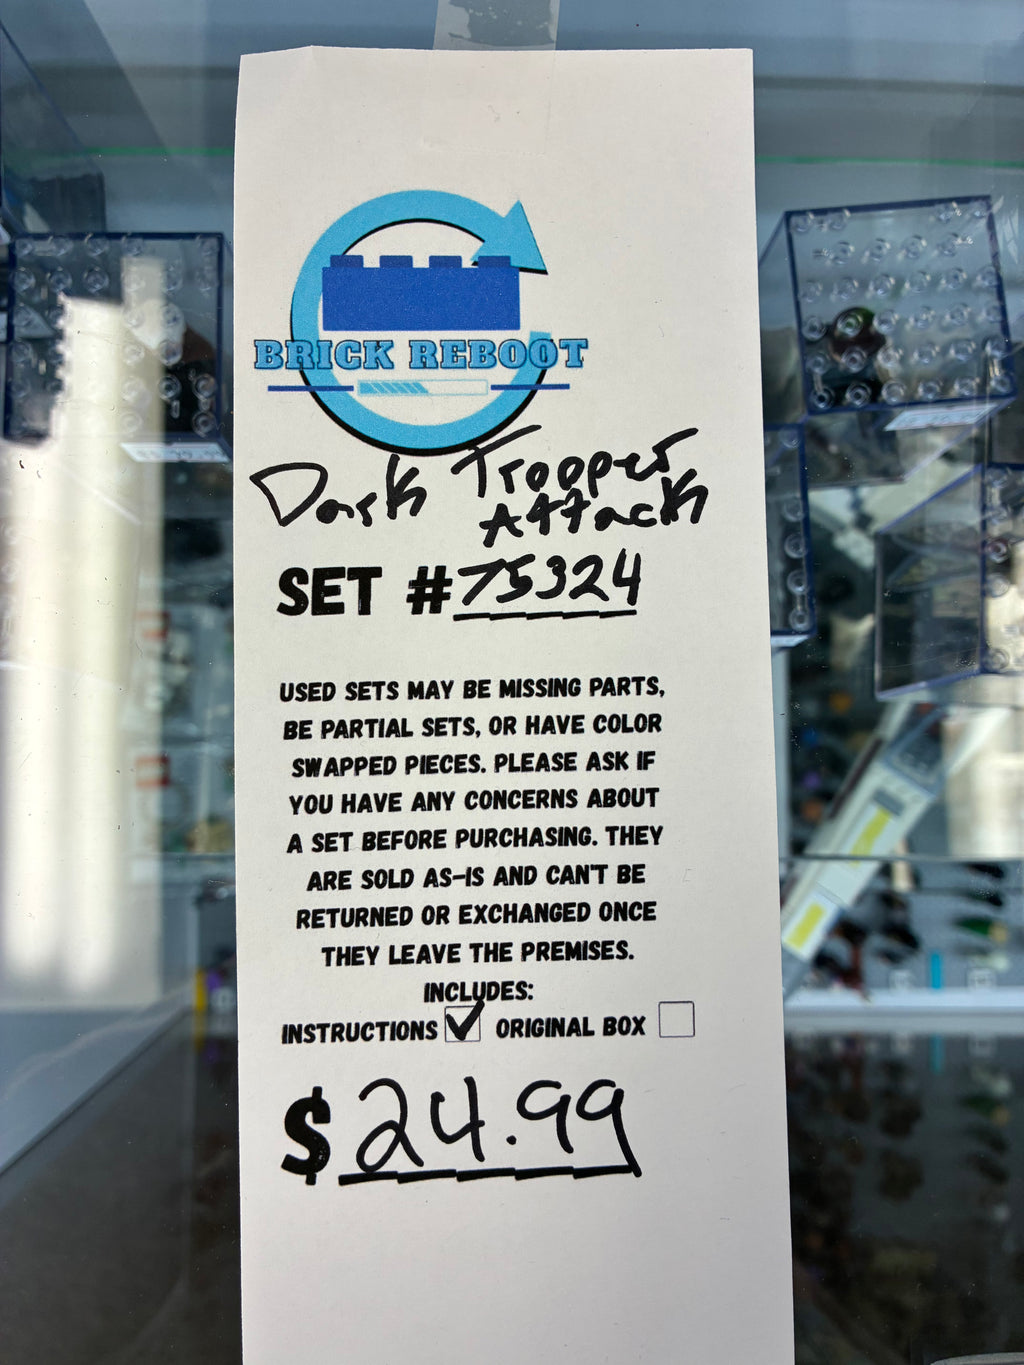 BRICK REBOOT
Dark Trooper
Attack
SET #75324
USED SETS MAY BE MISSING PARTS,
BE PARTIAL SETS, OR HAVE COLOR
SWAPPED PIECES. PLEASE ASK IF
YOU HAVE ANY CONCERNS ABOUT
A SET BEFORE PURCHASING. THEY
ARE SOLD AS-IS AND CAN'T BE
RETURNED OR EXCHANGED ONCE
THEY LEAVE THE PREMISES.
INCLUDES:
INSTRUCTIONS ORIGINAL BOX
$24.99